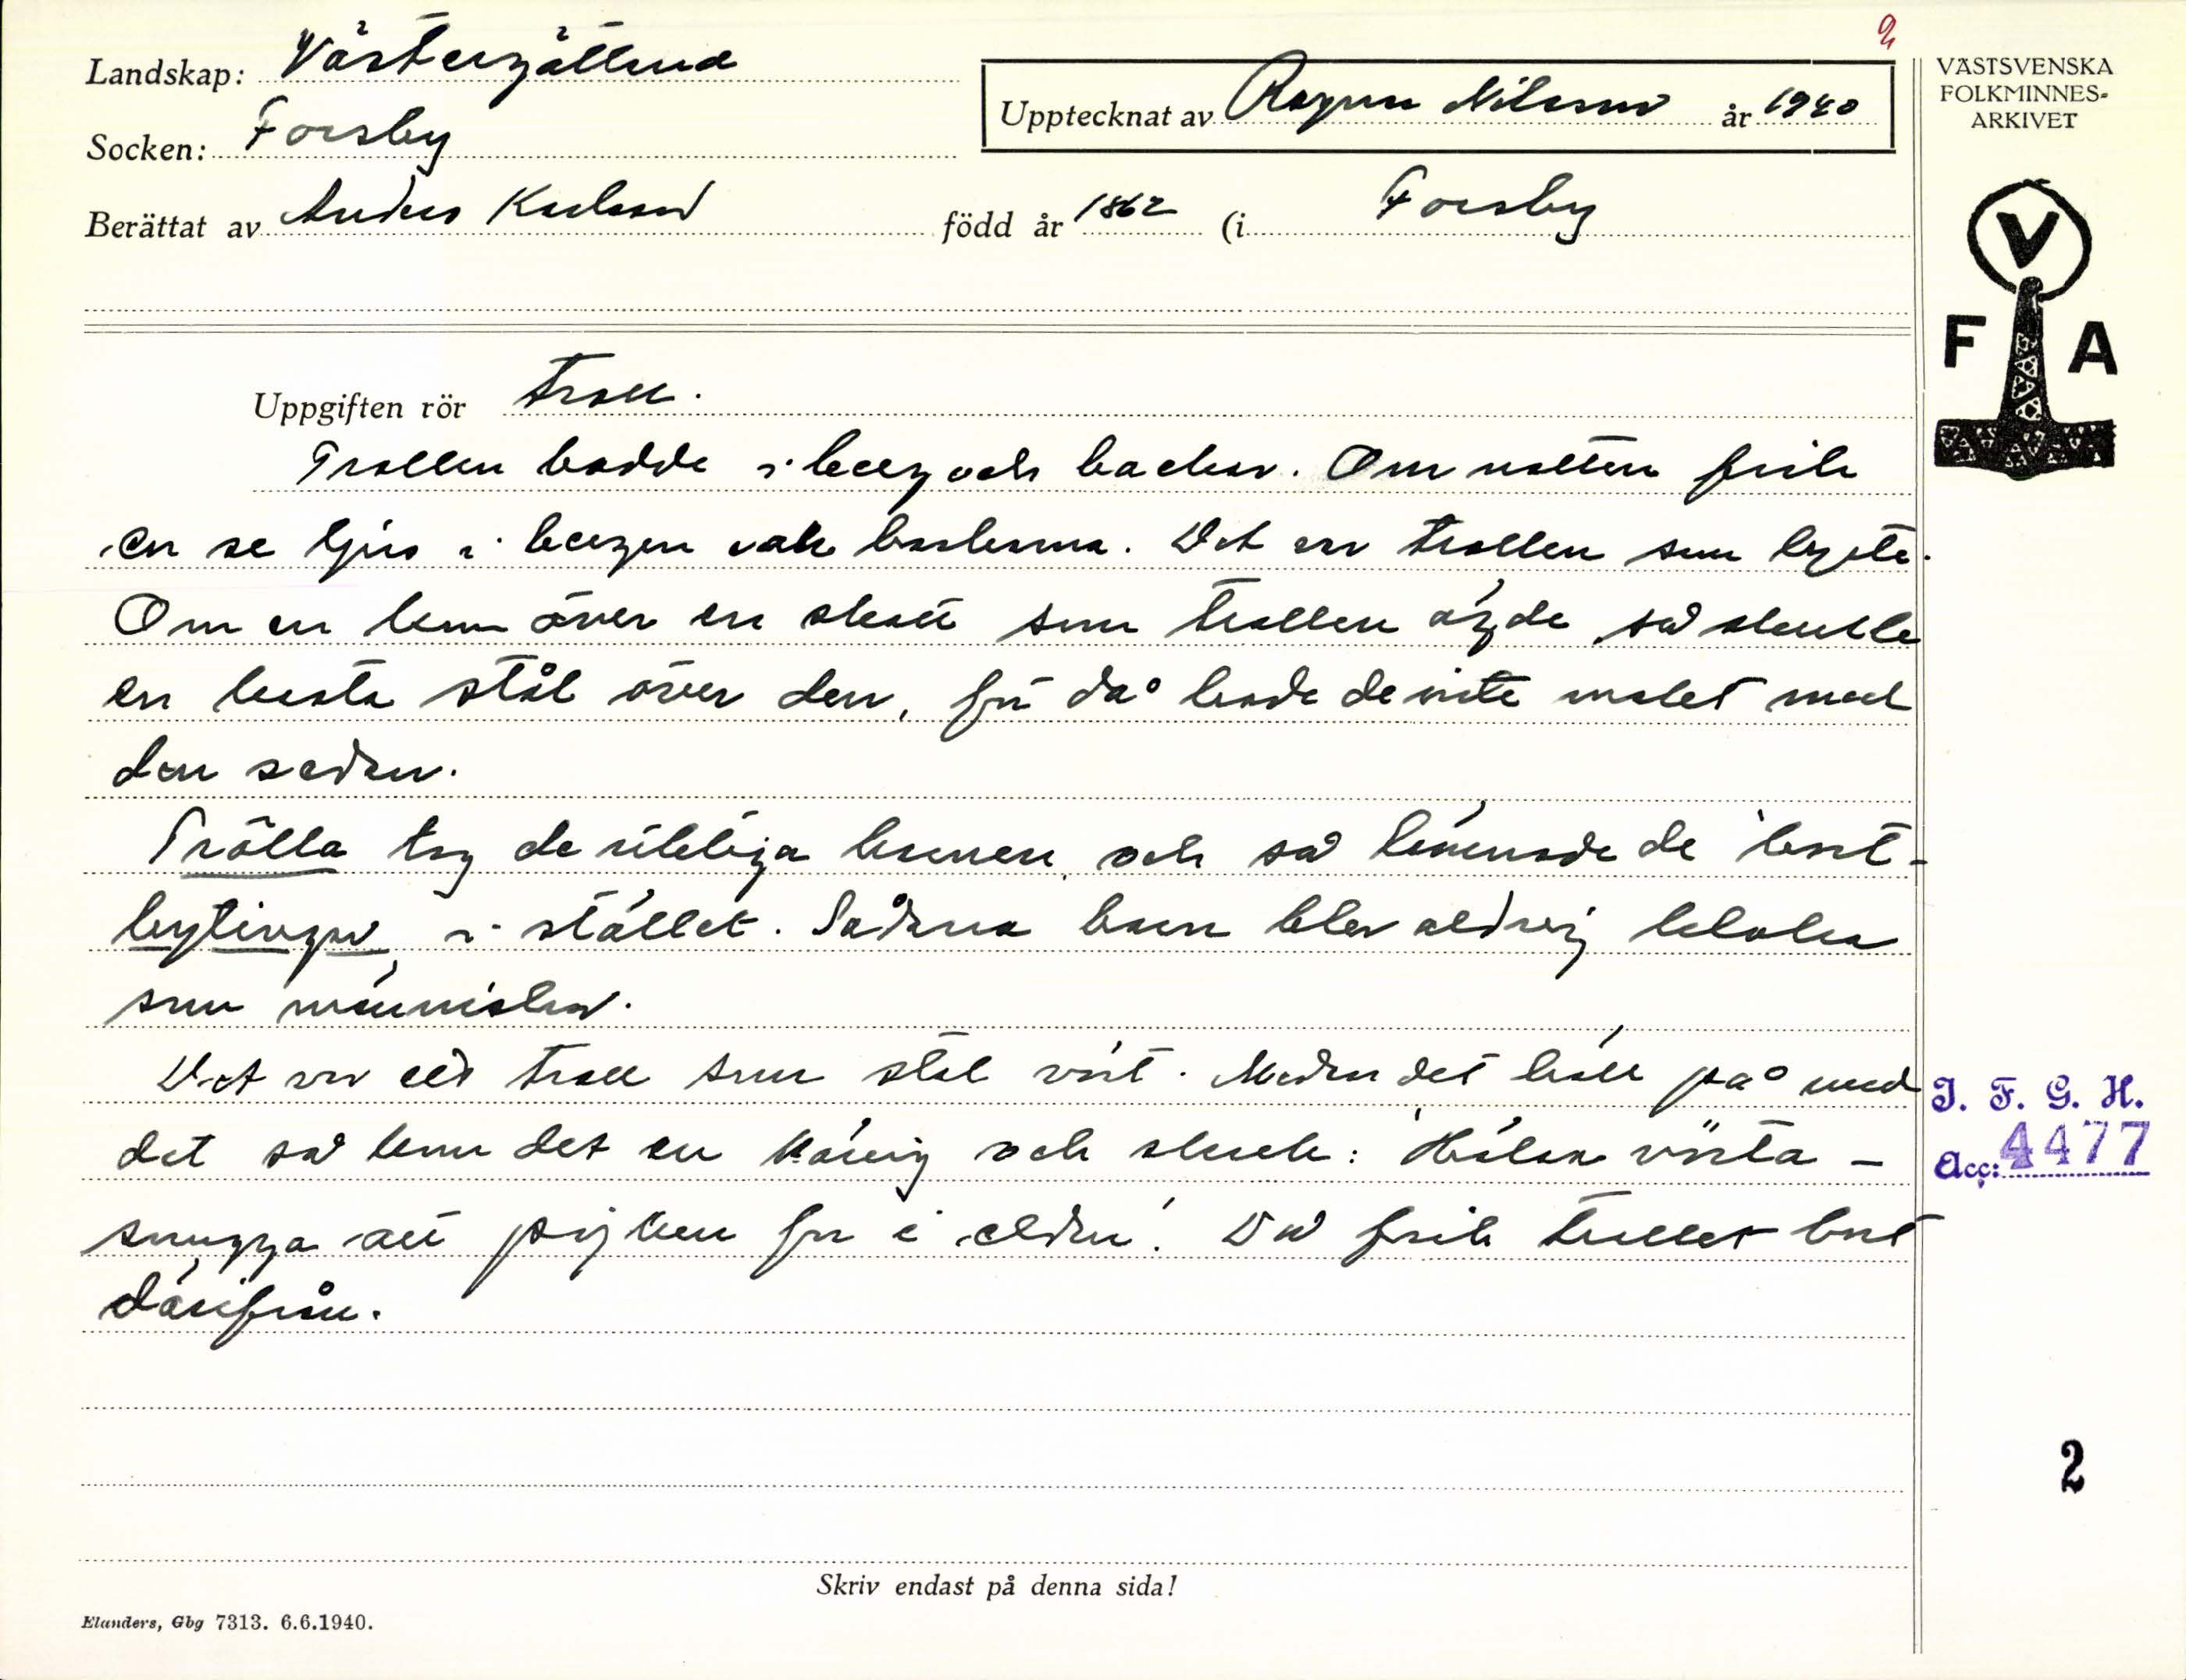 2
Landskap: Västergötland
Upptecknat av Ragnar Nilsson år 1940
Socken: Forsby
Berättat av Anders Karlsson född år 1862 (i Forsby
VÄSTSVENSKA
FOLKMINNES-
ARKIVET
V
F A
Uppgiften rör Troll.
Trollen bodde i berg och backar. Om natten fick
en se ljus i bergen och backarna. Det var trollen som lyste.
Om en kom över en skatt som trollen ägde så skulle
en kasta stål över den, för då hade de inte makt med
den sedan.
Trölla tog de riktiga barnen och så lämnade de bort-
bytingar i stället. Sådana barn blev aldrig kloka
som människor.
Det var ett troll som stal vört. Medan det höll på med
det så kom det en käring och skrek: Hälsa vörta-
snugga att pöjken for i elden! Då fick trollet bort
därifrån.
I. F. G. H.
Acc: 4477
2
Skriv endast på denna sida!
Elanders, Gbg 7313. 6.6.1940.